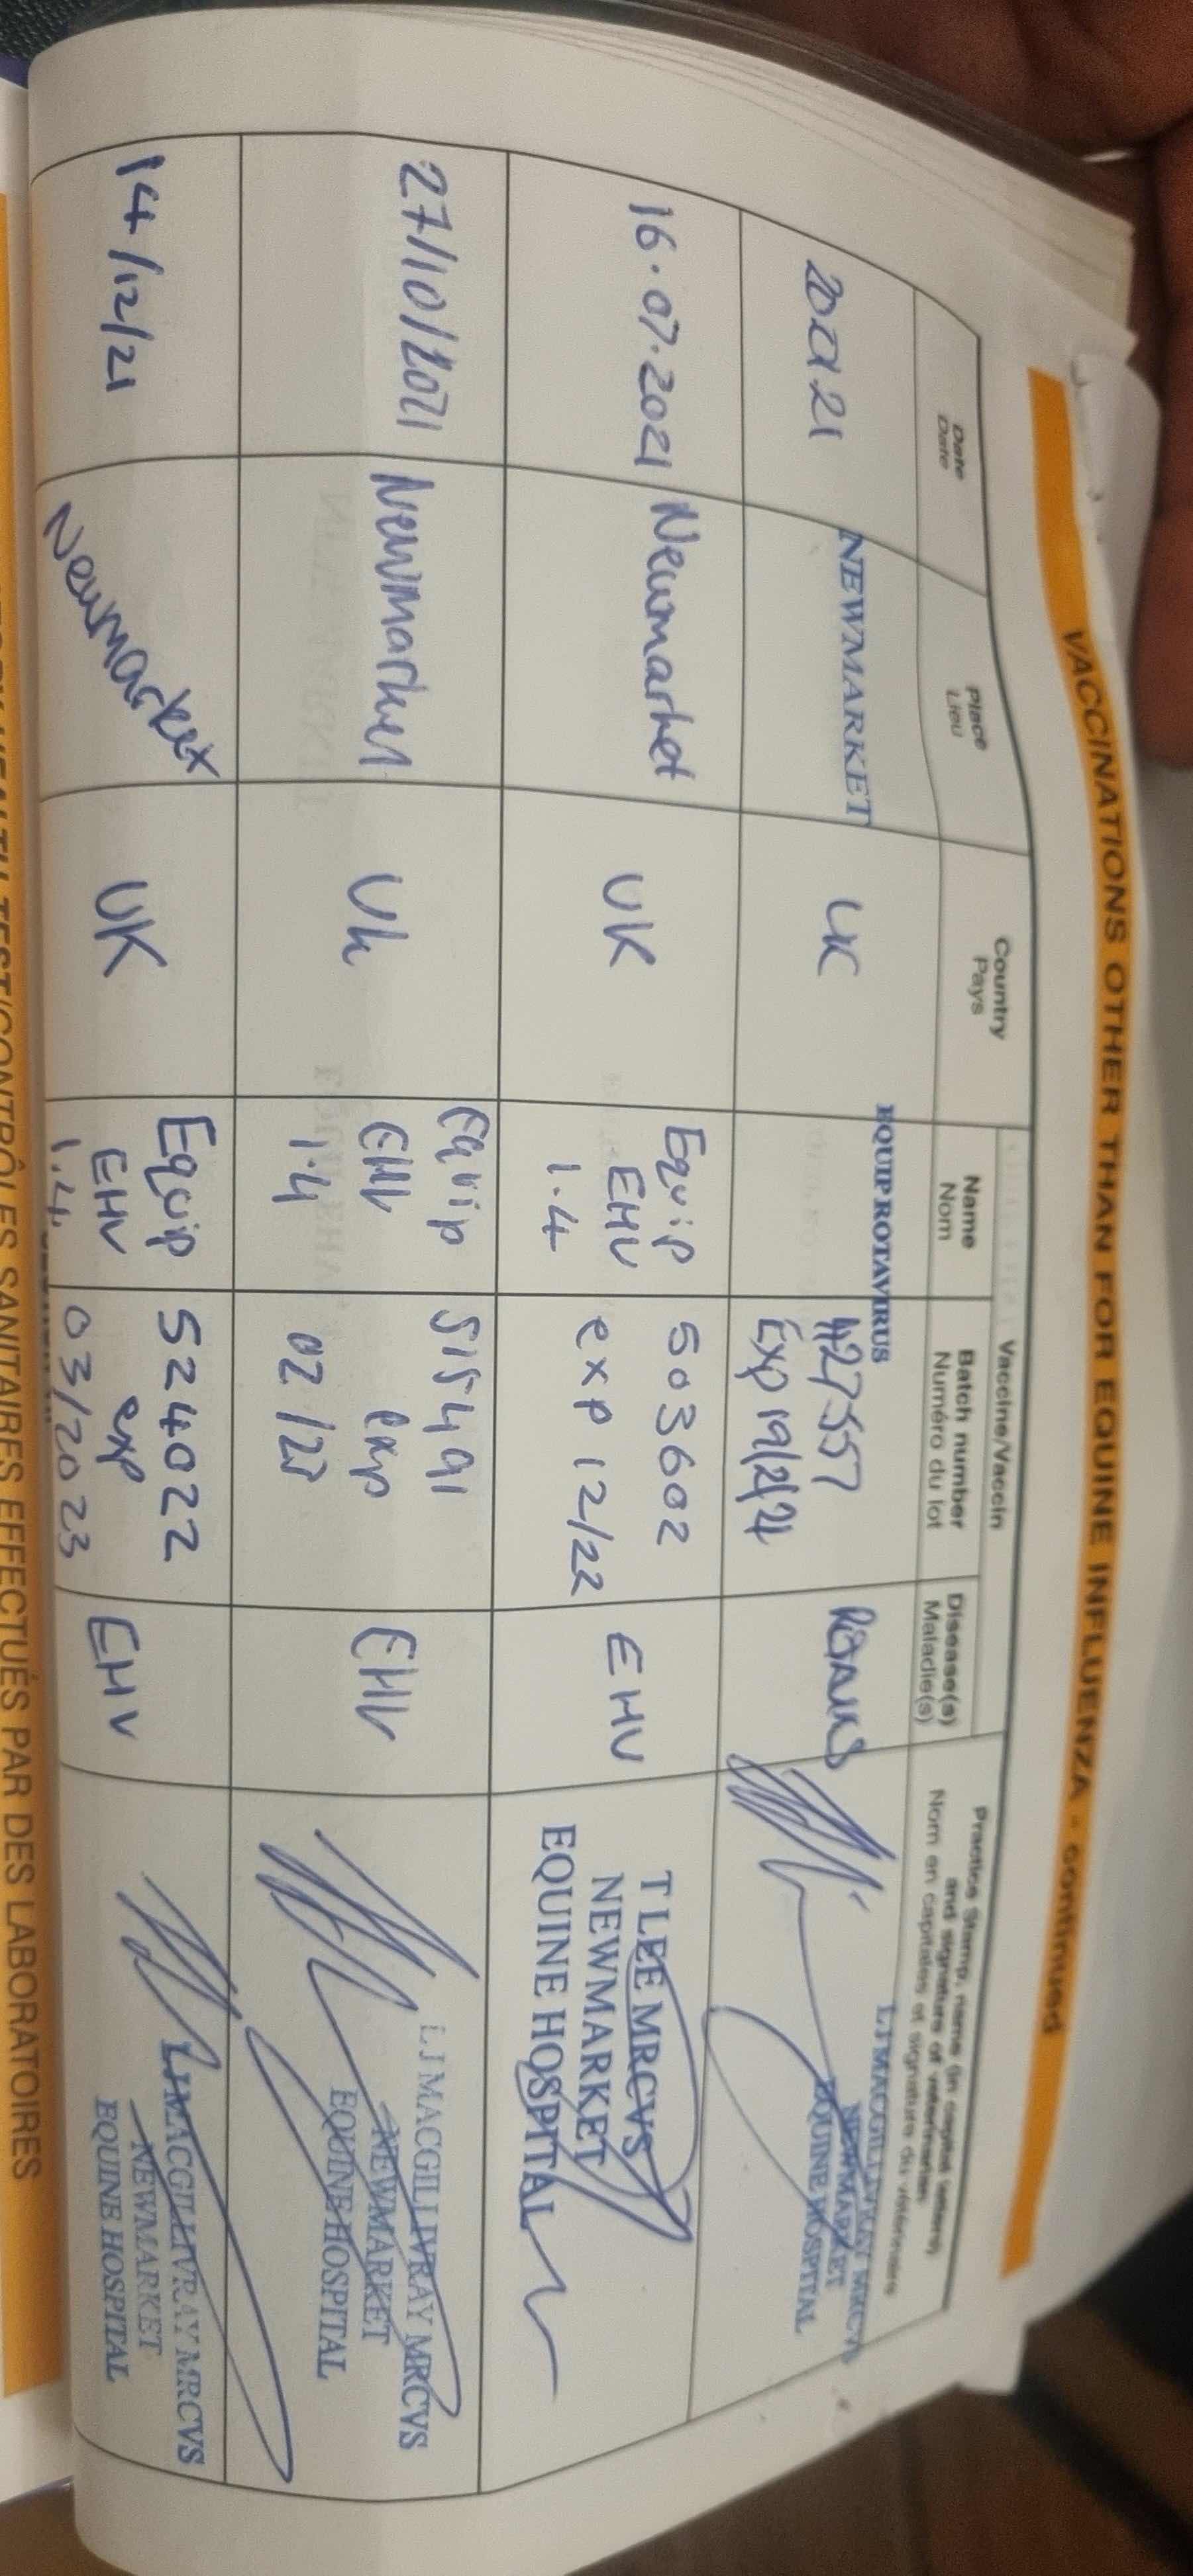 VACCINATIONS OTHER THAN FOR EQUINE INFLUENZA - continued
Date
Date
Place
Lieu
Country
Pays
Vaccine/Vaccin
Name
Nom
Batch number
Numéro du lot
Disease(s)
Maladie(s)
Practice Stamp, name (in capital letters)
and signature of veterinarian
Nom en capitales et signature du vétérinaire
NEWMARKET
UK
EQUIP ROTAVIRUS
Exp
L J MACGILLIVRAY MRCVS
NEWMARKET
EQUINE HOSPITAL
16.07.2021
Newmarket
UK
Equip
EHV
1.4
503602
exp 12/22
EHV
T LEE MRCVS
NEWMARKET
EQUINE HOSPITAL
27/10/2021
Newmarket
Uk
Equip
EHV
1.4
515491
exp
EHV
L J MACGILLIVRAY MRCVS
NEWMARKET
EQUINE HOSPITAL
14/12/21
Newmarket
UK
Equip
EHV
1.4.
524022
exp
03/2023
EHV
L J MACGILLIVRAY MRCVS
NEWMARKET
EQUINE HOSPITAL
HEALTH TEST/CONTRÔLES SANITAIRES EFFECTUÉS PAR DES LABORATOIRES